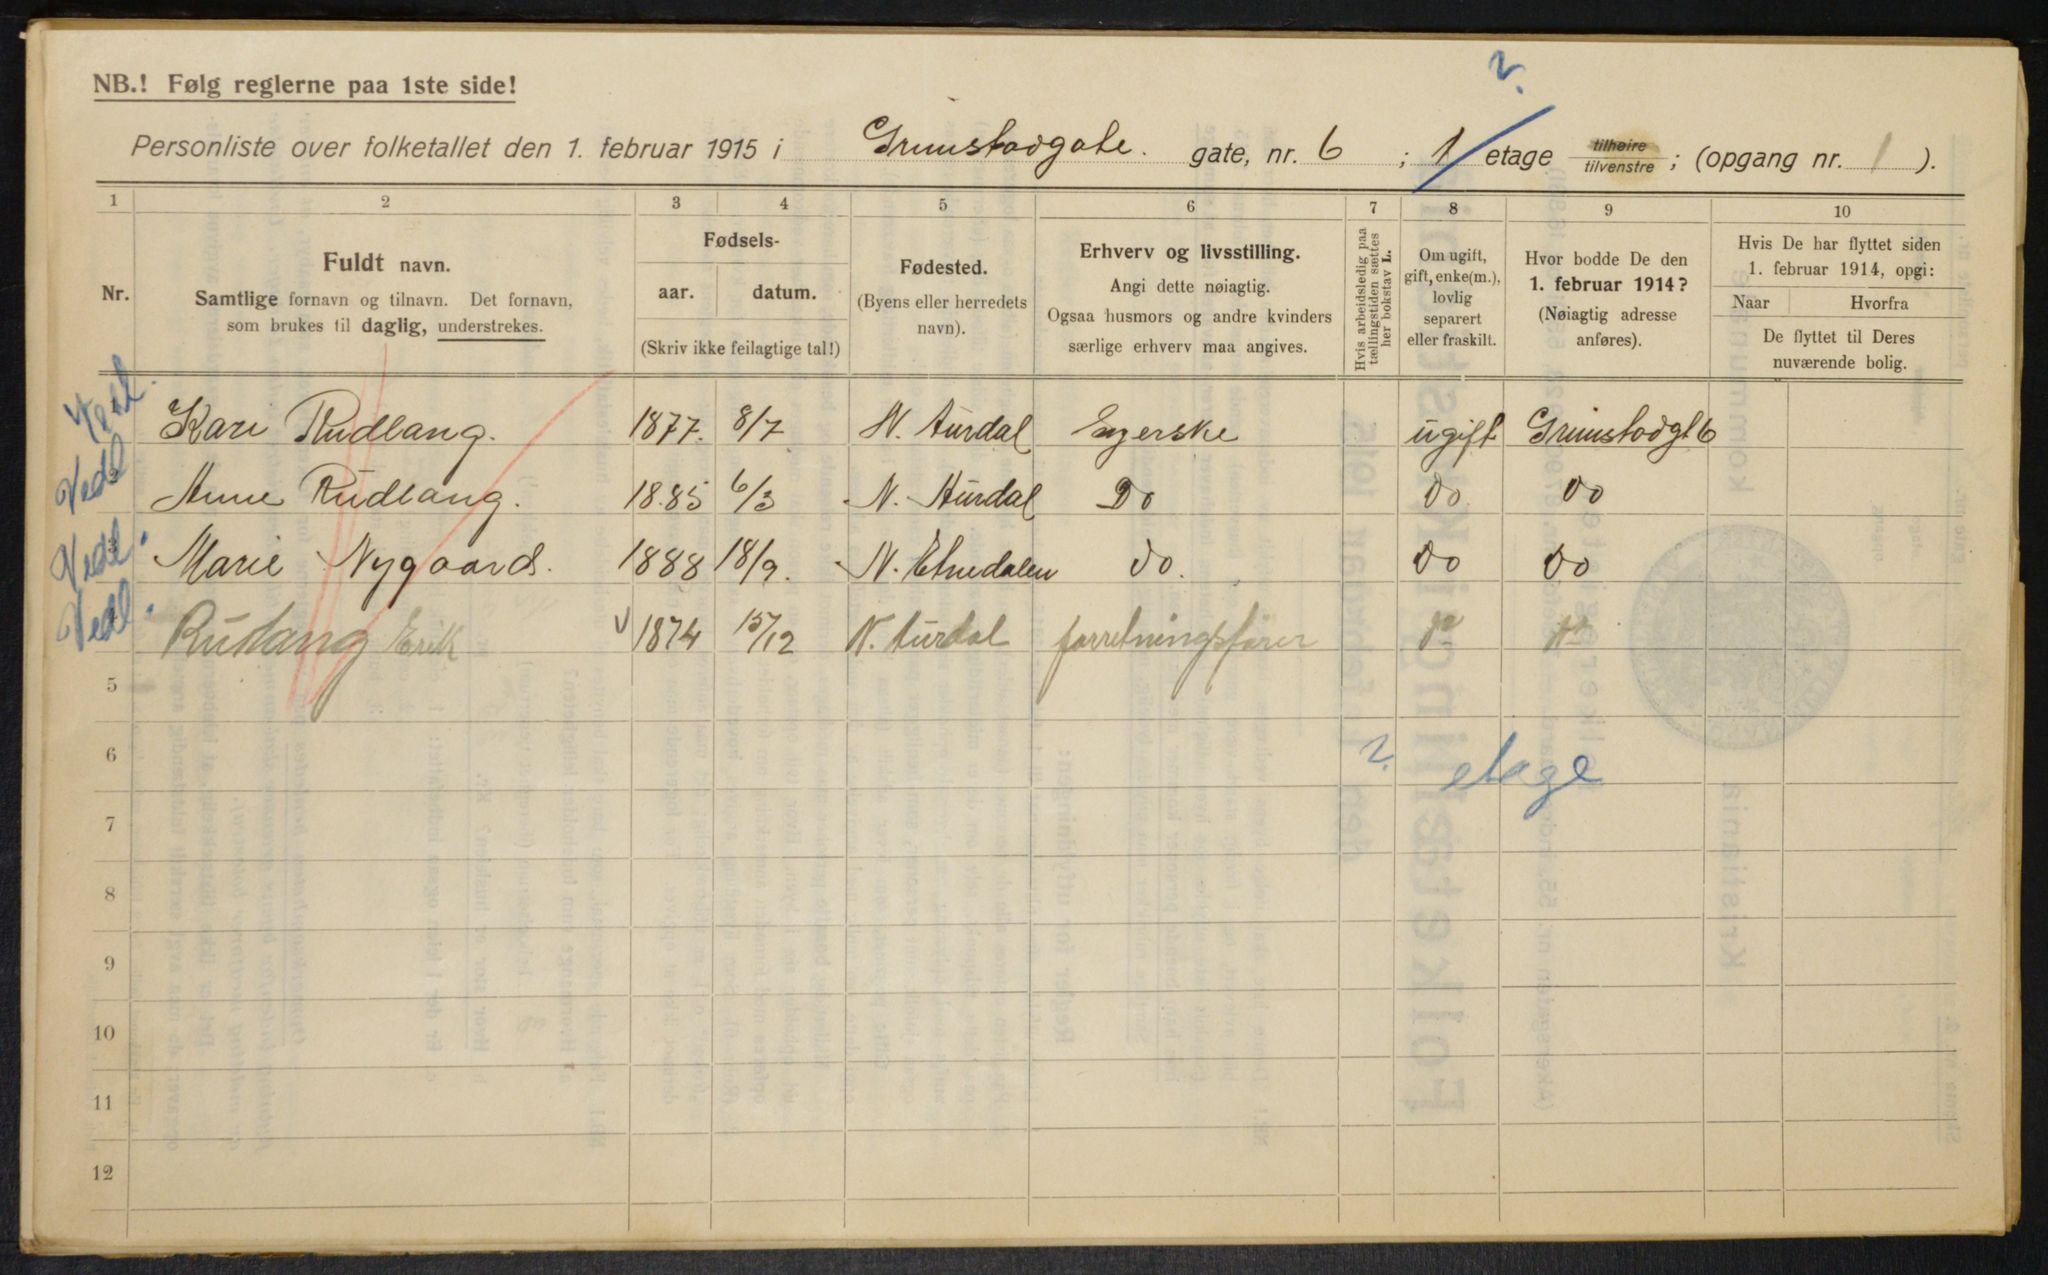 2.
NB.! Følg reglerne paa 1ste side!
Personliste over folketallet den 1. februar 1915 i Grimstadgate. gate, nr. 6 ; 1 etage tilhøire tilvenstre ; (opgang nr. 1 ).
1 2 3 4 5 6 7 8 9 10
Nr.
Fuldt navn.
Samtlige fornavn og tilnavn. Det fornavn,
som brukes til daglig, understrekes.
Fødsels-
aar. datum.
(Skriv ikke feilagtige tal!)
Fødested.
(Byens eller herredets
navn).
Erhverv og livsstilling.
Angi dette nøiagtig.
Ogsaa husmors og andre kvinders
særlige erhverv maa angives.
Hvis arbeidsledig paa
tællingstiden sættes
her bokstav L.
Om ugift,
gift, enke(m.),
lovlig
separert
eller fraskilt.
Hvor bodde De den
1. februar 1914?
(Nøiagtig adresse
anføres).
Hvis De har flyttet siden
1. februar 1914, opgi:
Naar Hvorfra
De flyttet til Deres
nuværende bolig.
Vedl. Kari Rudlang. 1877. 8/7 N. Aurdal Syerske ugift Grimstadgt 6
Vedl. Anne Rudlang. 1885 6/3 N. Aurdal Do do do
Vedl. Marie Nygaard. 1888 18/9. N. Etnedalen do. do do
Vedl. Rudlang Erik V 1874 15/12 N. Aurdal forretningsfører
5
6 2. etage
7
8
9
10
11
12